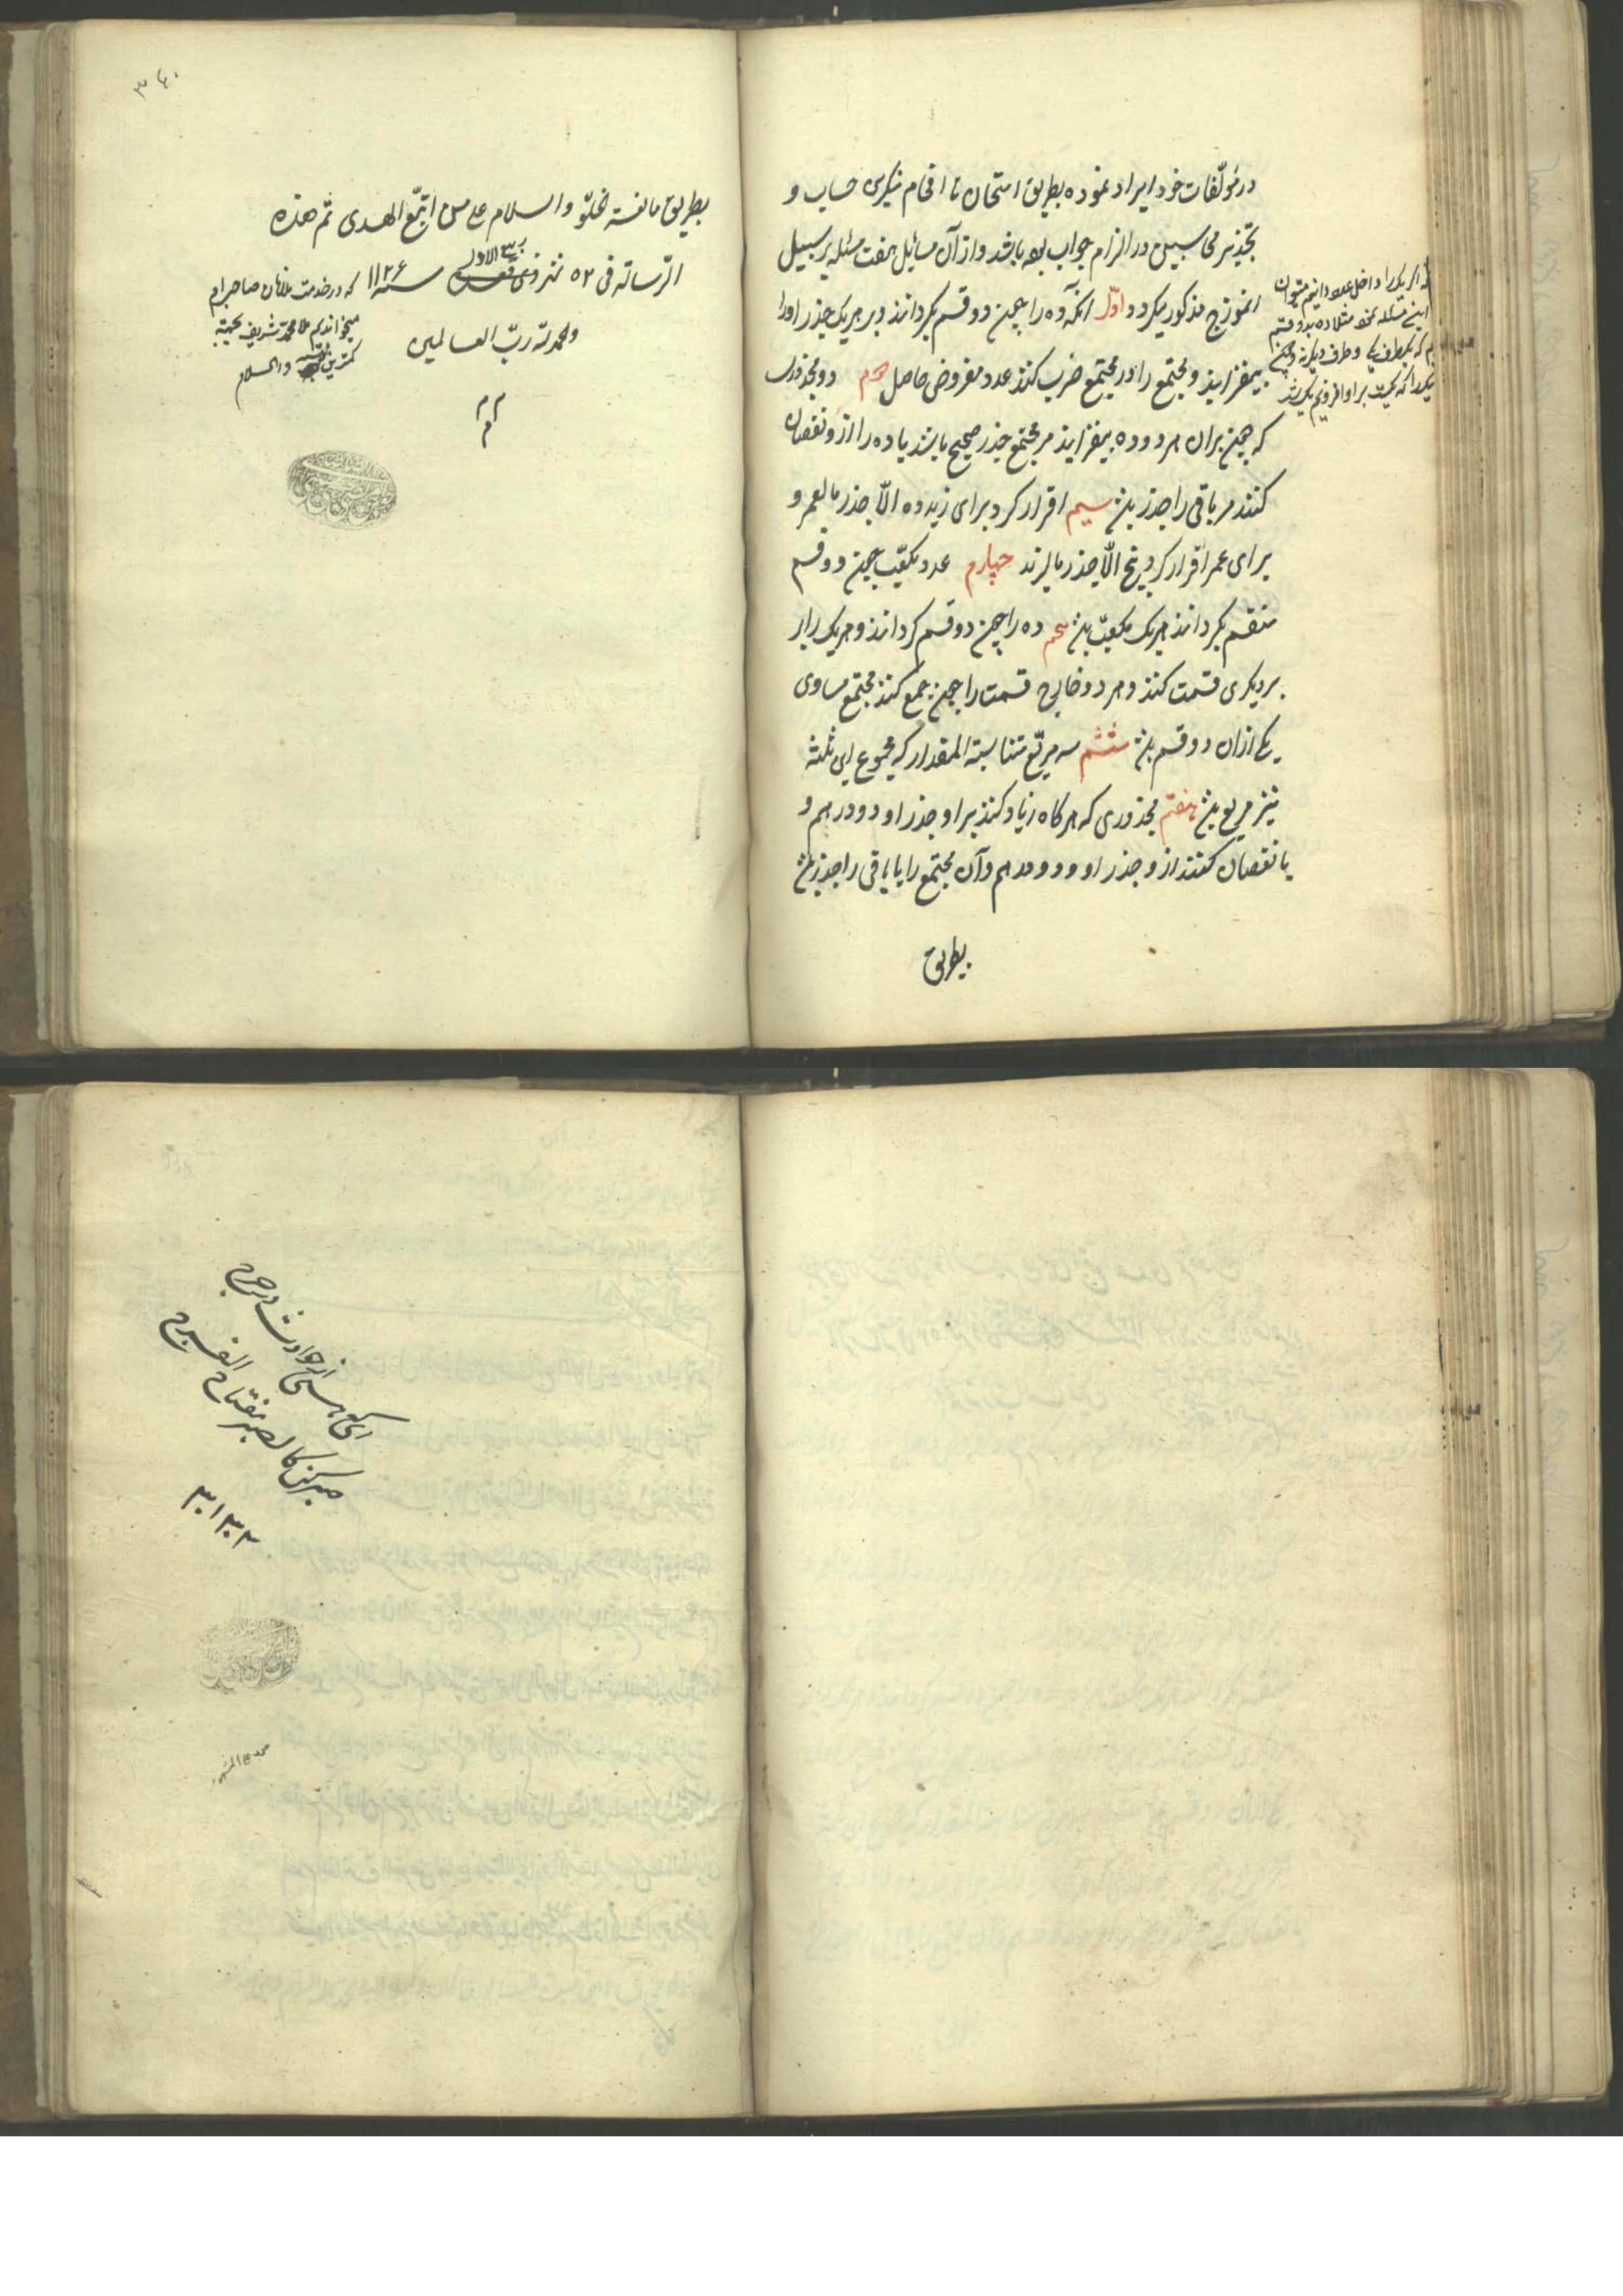 در مؤلّفات خود ایراد نموده بطریق امتحان تا افحام منکرین حساب و
تجذیر محاسبین در الزام جواب بوده باشد و از آن مسائل هفت مسئله بر سبیل
انموزج مذکور میکردد اوّل آنکه ده را چون دو قسم کردانند و بر هر یک جذر او را
بیفزایند و مجتمع را در مجتمع ضرب کنند عدد مفروض حاصل دوم دو مجذور
که چون بران هر دو ده بیفزایند مر مجتمع جذر صحیح باشد یا ده را ازو نقصان
کنند مر باقی را جذر باشد سیم اقرار کرد برای زید ده الّا جذر ما لعمر و
برای عمر اقرار کرد پنج الّا جذر ما لزید چهارم عدد مکعّب چون دو قسم
منقسم کردانند هر یک مکعّب باشد پنجم ده را چون دو قسم کردانند و هر یک را بر
بر دیکری قسمت کنند و هر دو خارج قسمت را چون جمع کنند مجتمع مساوی
یکی از ان دو قسم باشد ششم سه مربّع متناسبة المقدار که مجموع این ثلثه
نیز مربع باشد هفتم مجذوری که هرکاه زیاد کنند بر او جذر او دو درهم و
یا نقصان کنند از و جذر او و دو درهم و آن مجتمع را یا باقی را جذر باشد
بطریق
که اگر یک را داخل عدد دانیم میتوان
این مسئله نمود مثلا ده بدو قسم
که یکطرف یک و طرف دیکر نه و چون
یک را که یکست بر او افزودیم
۳۴۰
بطریق ما نفسه تخلّو والسلام علی من اتبّع الهدی تم هذه
الرّساله فی ۵۲ شهر ربیع الاول سنه ۱۱۲۶
که در خدمت صاحبرام
میخواندیم ملا محمد شریف بجهة
کمترین والسلام
والحمد لله ربّ العالمین
م م م
ای که هستی از حوادث در حرج
صبر کن کالصبر مفتاح الفرج